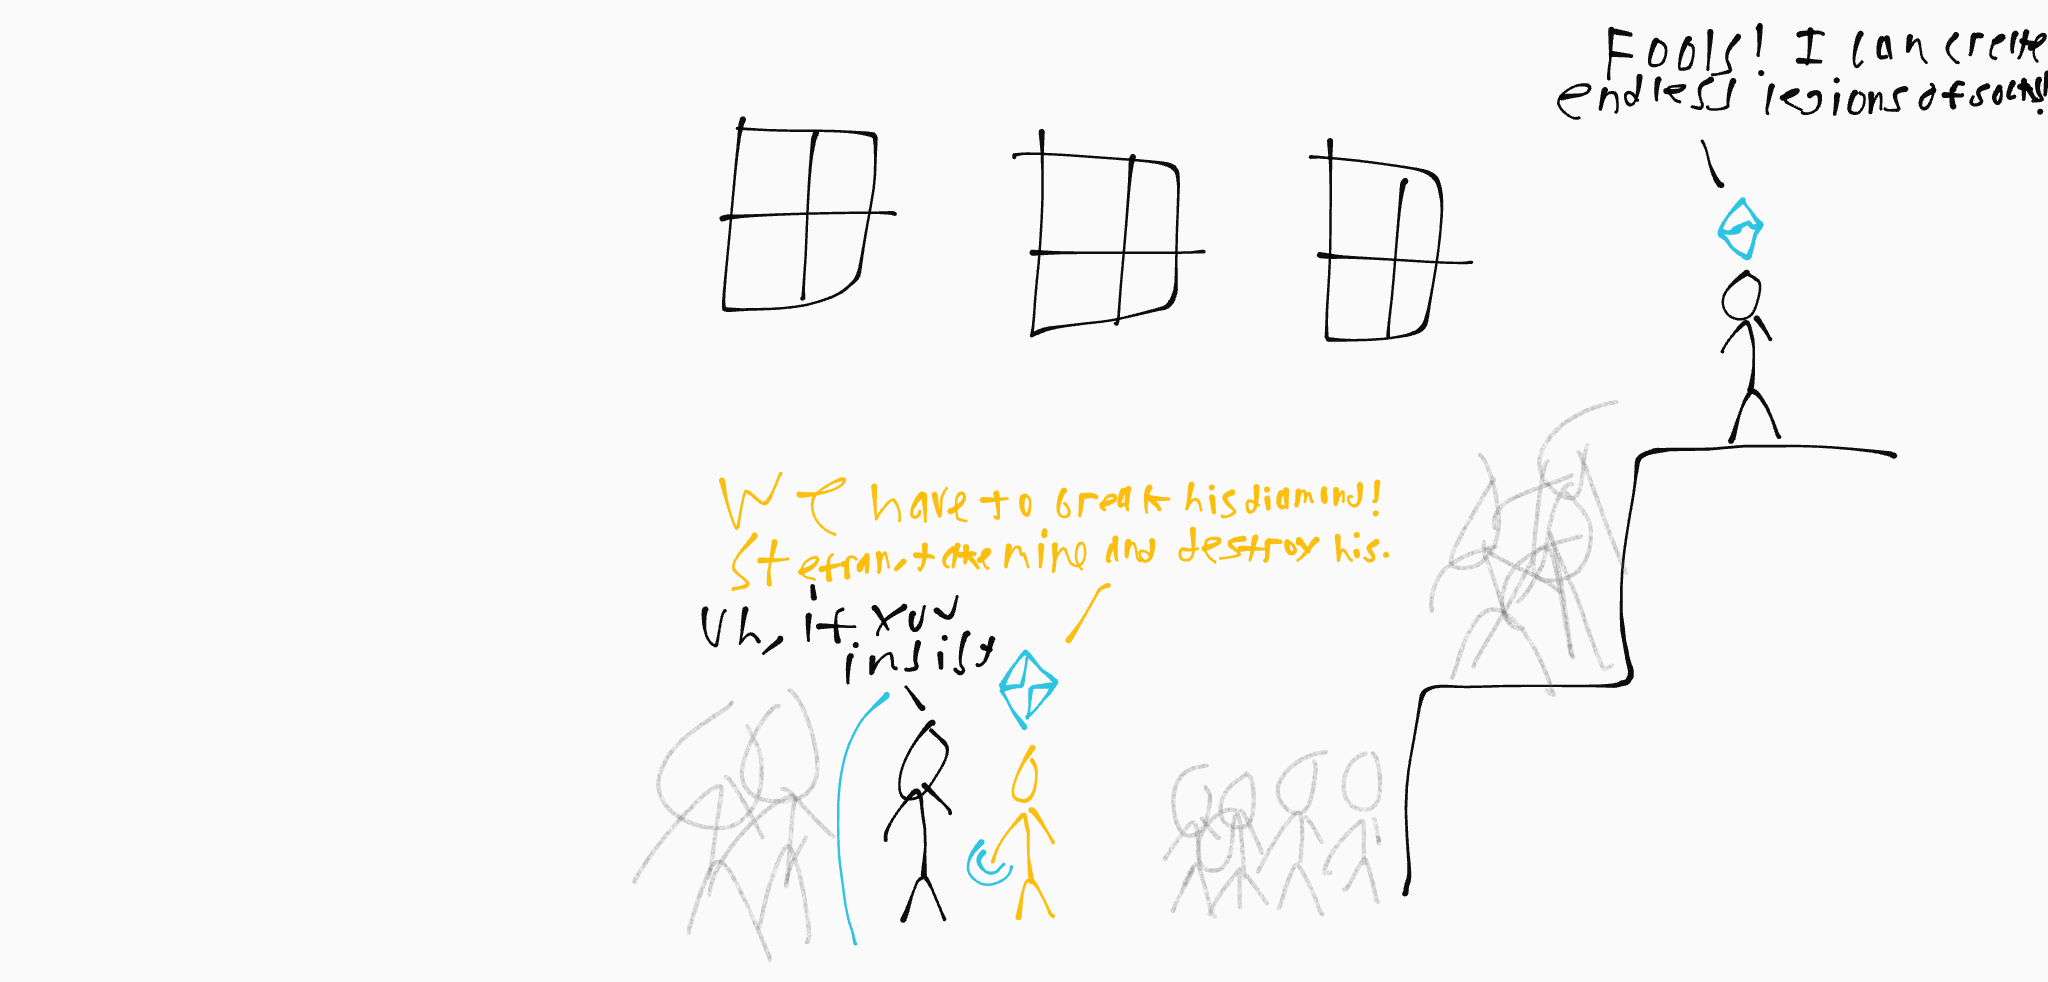 Fools! I can create
endless legions of
We have to break his diamond!
Stefran, take mine and destroy his.
Uh, if you
insist